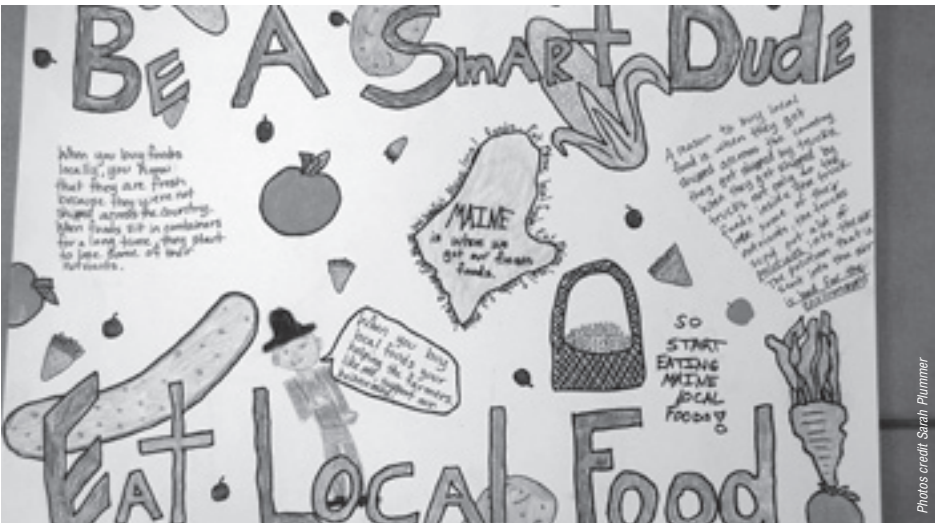 BE A SmART DudE
When you buy foods
locally, you know
that they are fresh
because they were not
shipped across the country.
When foods sit in containers
for a long time, they start
to lose some of their
nutrients.
MAINE
is where we
get our fresh
foods.
A reason to buy local
food is when they get
shipped across the country
they get shipped by trucks.
When they get shipped by
trucks not only do the
foods inside the truck
lose some of their
nutrients the trucks
send out a lot of
pollution into the air.
The pollution that is
sent into the air
is bad for the
environment.
When you buy
local foods your
helping the farmers,
like me, support our
SO
START
EATING
MAINE
LOCAL
FOODS!
EAT LOCAL Food
Photos credit Sarah Plummer